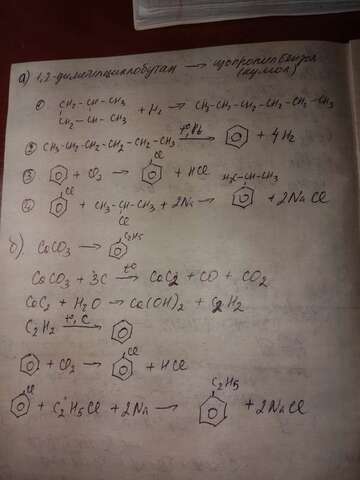 а) 1,2-диметилциклобутан → изопропилбензол
(кумол)
① CH₂-CH-CH₃
CH₂-CH-CH₃ + H₂ → CH₃-CH₂-CH₂-CH₂-CH₂-CH₃
② CH₃-CH₂-CH₂-CH₂-CH₂-CH₃ t°, Pt → + 4H₂
Cl
③ + Cl₂ → + HCl
Cl H₃C-CH-CH₃
④ + CH₃-CH-CH₃ + 2Na → + 2NaCl
Cl
б) CaCO₃ → C₂H₅
CaCO₃ + 3C t° → CaC₂ + CO + CO₂
CaC₂ + H₂O → Ca(OH)₂ + C₂H₂
C₂H₂ t°, C →
Cl
+ Cl₂ → + HCl
Cl C₂H₅
+ C₂H₅Cl + 2Na → + 2NaCl